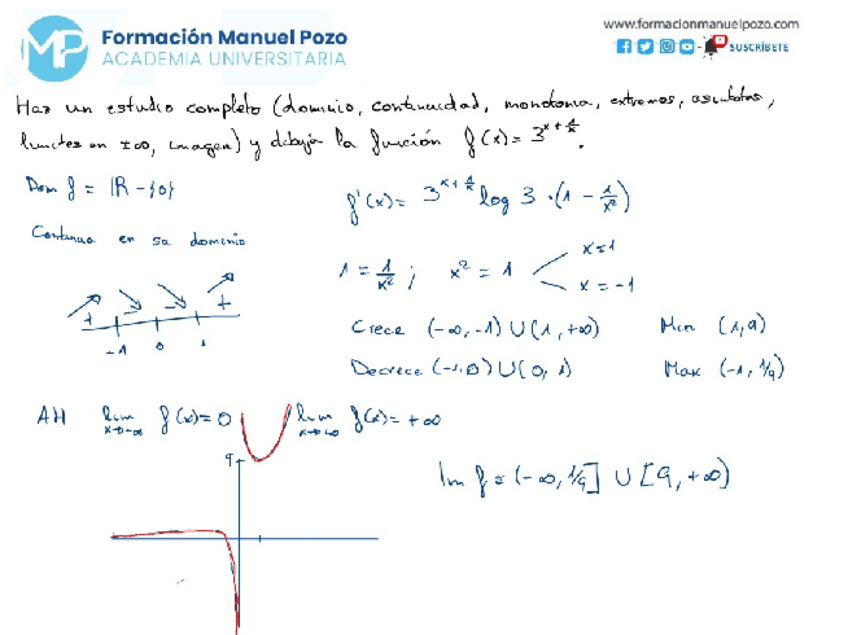 Formación Manuel Pozo
ACADEMIA UNIVERSITARIA
www.formacionmanuelpozo.com
SUSCRÍBETE
Haz un estudio completo (dominio, continuidad, monotonía, extremos, asíntotas,
límites en ±∞, imagen) y dibuja la función f(x) = 3^{x + 1/x}.
Dom f = ℝ - {0}
f'(x) = 3^{x + 1/x} log 3 · (1 - 1/x²)
Continua en su dominio
1 = 1/x² ; x² = 1
x = 1
x = -1
+ +
-1 0 1
Crece (-∞, -1) ∪ (1, +∞) Min (1, 9)
Decrece (-1, 0) ∪ (0, 1) Max (-1, 1/9)
AH lim x→-∞ f(x) = 0 lim x→+∞ f(x) = +∞
9
Im f = (-∞, 1/9] ∪ [9, +∞)